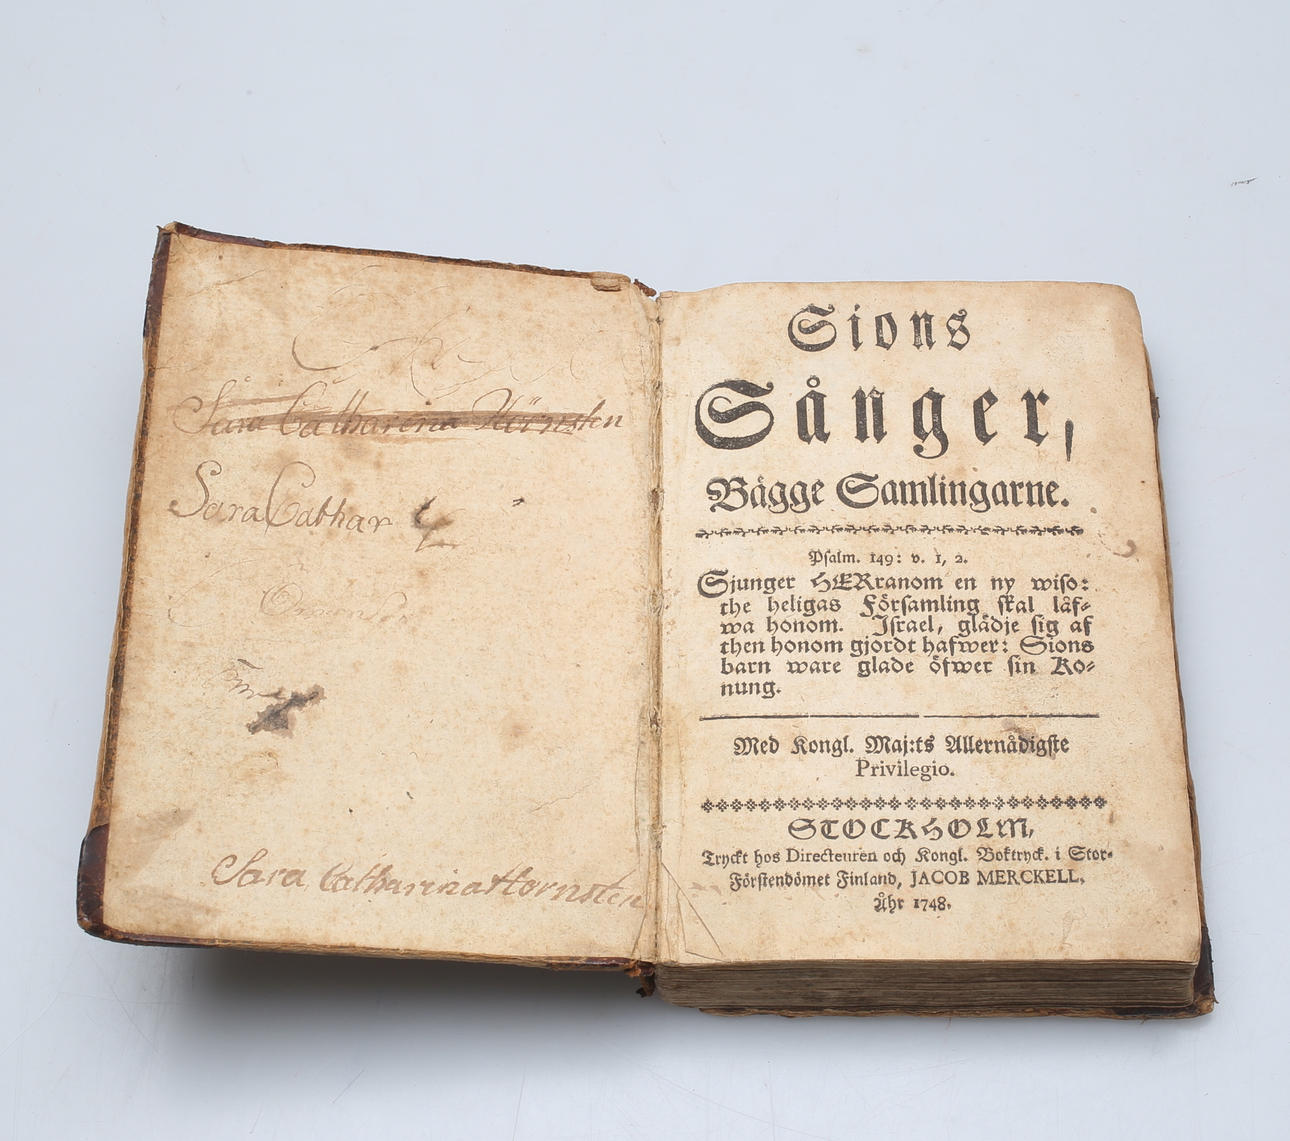 Sara Catharina Hörnsten
Sara Cathar
Sara Catharina Hornsten
Sions
Sånger,
Bägge Samlingarne.
Psalm. 149: v. 1, 2.
Sjunger HERranom en ny wiso:
the heligas Församling skal låf-
wa honom. Israel, glädje sig af
then honom gjordt hafwer: Sions
barn ware glade öfwer sin Ko-
nung.
Med Kongl. Maj:ts Allernådigste
Privilegio.
STOCKHOLM,
Tryckt hos Directeuren och Kongl. Boktryck. i Stor-
Förstendömet Finland, JACOB MERCKELL,
Åhr 1748.